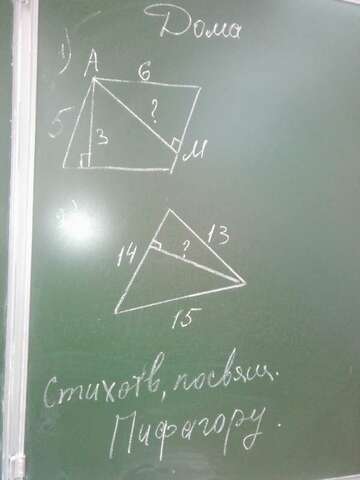 Дома
1)
А 6
5 3 ?
М
2)
14 ? 13
15
Стихотв, посвящ.
Пифагору.